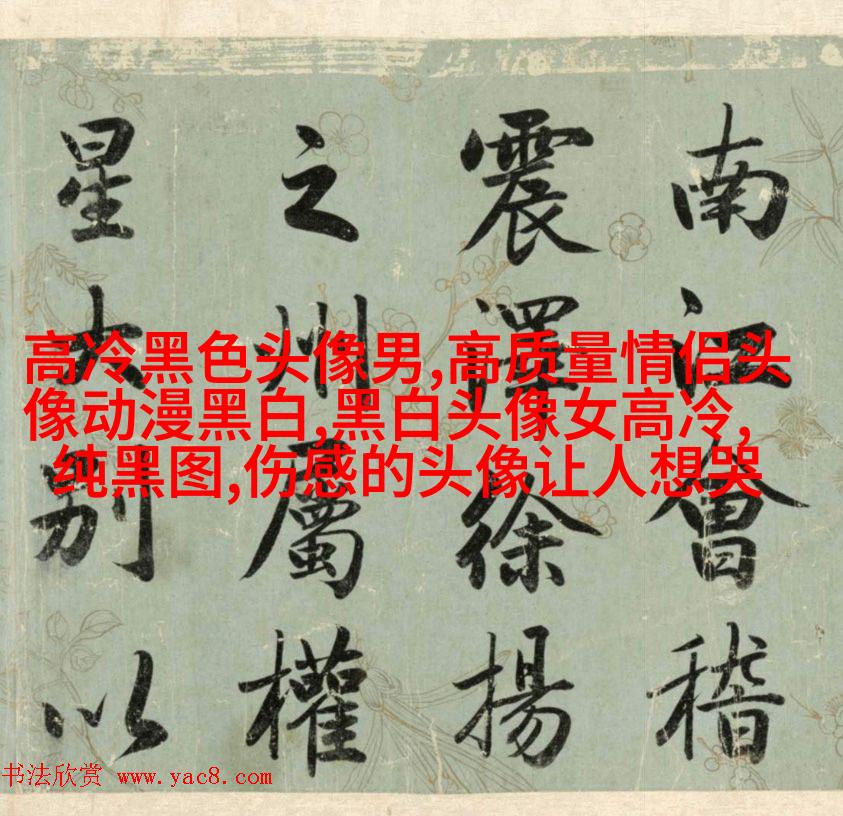 南江會稽
震澤徐揚
之州屬權
星大別以
高冷黑色头像男,高质量情侣头
像动漫黑白,黑白头像女高冷,
纯黑图,伤感的头像让人想哭
书法欣赏 www.yac8.com